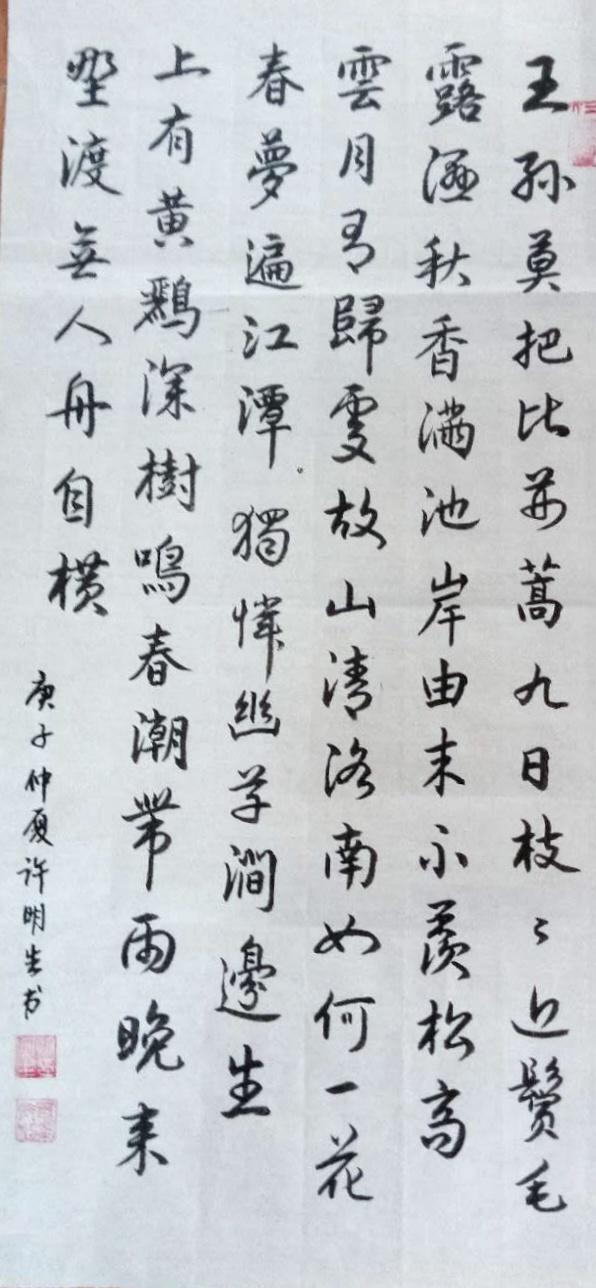 王孙莫把比荊蒿九日枝〻近鬢毛
露濕秋香滿池岸由来不羨松高
雲月有歸處故山清洛南如何一花
春夢遍江潭獨憐幽草澗邊生
上有黄鸝深樹鳴春潮帶雨晚来
野渡無人舟自横
庚子仲夏许明生书